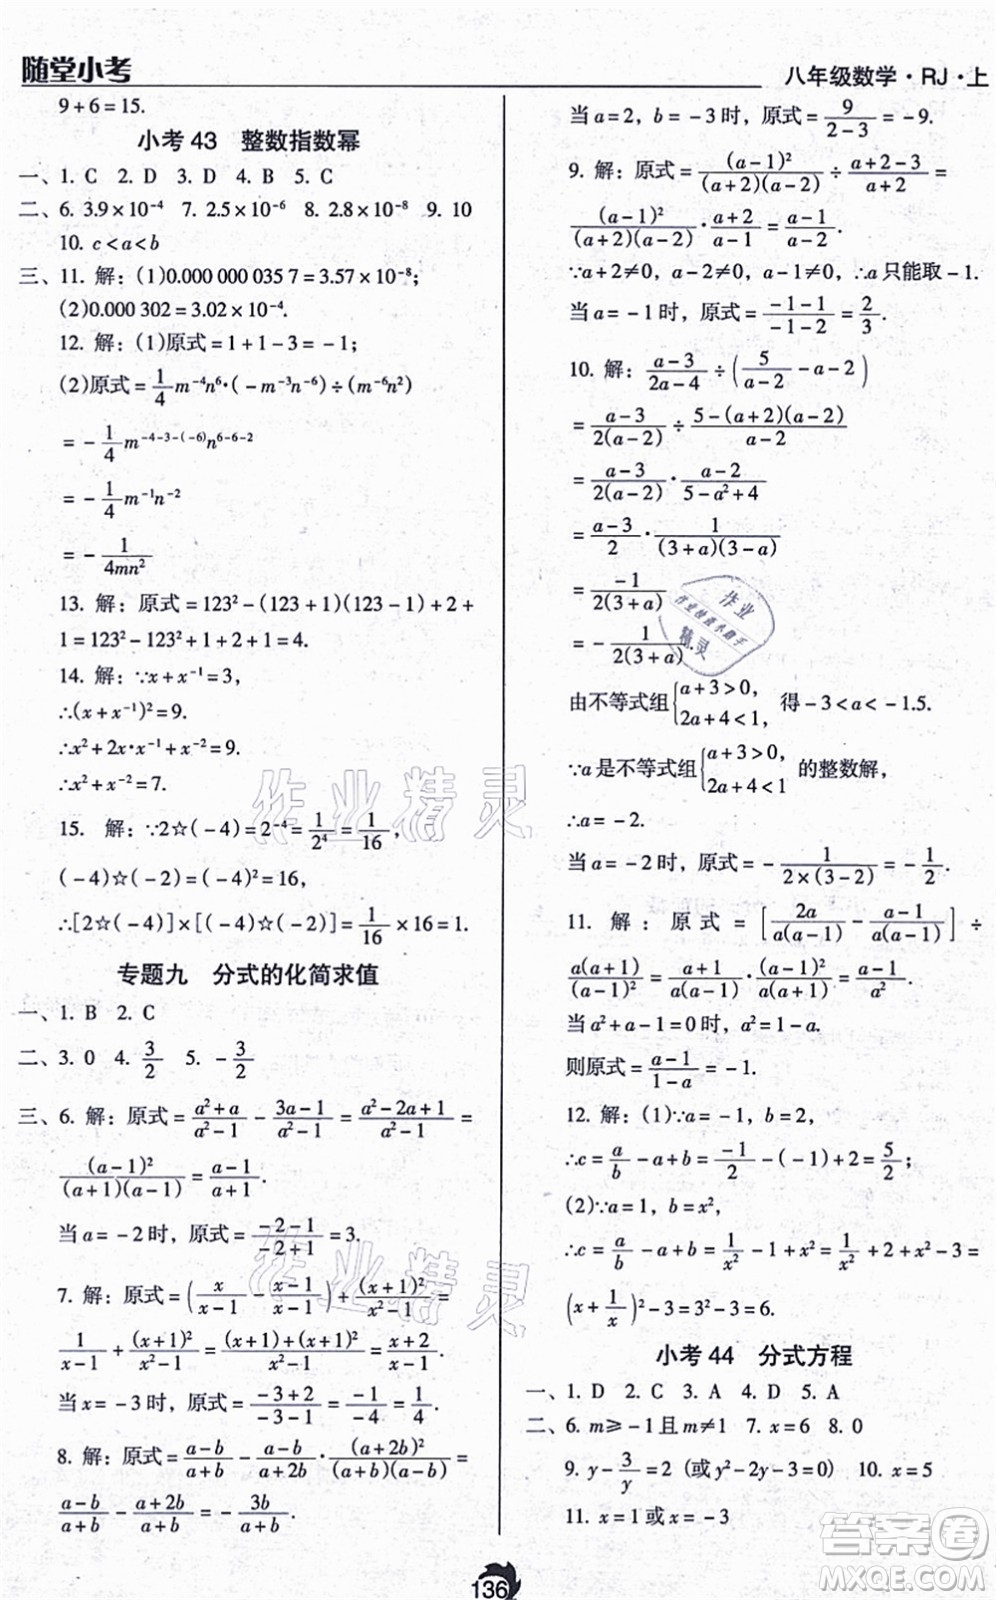 随堂小考
八年级数学·RJ·上
9+6=15.
小考 43 整数指数幂
一、1. C 2. D 3. D 4. B 5. C
二、6. 3.9×10⁻⁴ 7. 2.5×10⁻⁶ 8. 2.8×10⁻⁸ 9. 10
10. c<a<b
三、11. 解：(1)0.000 000 035 7=3.57×10⁻⁸；
(2)0.000 302=3.02×10⁻⁴.
12. 解：(1)原式=1+1-3=-1；
(2)原式=1/4 m⁻⁴n⁶·(-m⁻³n⁻⁶)÷(m⁻⁶n²)
=-1/4 m^(-4-3-(-6))n^(6-6-2)
=-1/4 m⁻¹n⁻²
=-1/(4mn²)
13. 解：原式=123²-(123+1)(123-1)+2+
1=123²-123²+1+2+1=4.
14. 解：∵x+x⁻¹=3，
∴(x+x⁻¹)²=9.
∴x²+2x·x⁻¹+x⁻²=9.
∴x²+x⁻²=7.
15. 解：∵2☆(-4)=2⁻⁴=1/2⁴=1/16，
(-4)☆(-2)=(-4)²=16，
∴[2☆(-4)]×[(-4)☆(-2)]=1/16×16=1.
专题九 分式的化简求值
一、1. B 2. C
二、3. 0 4. 3/2 5. -3/2
三、6. 解：原式=(a²+a)/(a²-1)-(3a-1)/(a²-1)=(a²-2a+1)/(a²-1)=
(a-1)²/((a+1)(a-1))=(a-1)/(a+1).
当a=-2时，原式=(-2-1)/(-2+1)=3.
7. 解：原式=(x/(x-1)-(x-1)/(x-1))+(x+1)²/(x²-1)=
1/(x-1)+(x+1)²/(x²-1)=((x+1)+(x+1)²)/((x+1)(x-1))=(x+2)/(x-1).
当x=-3时，原式=(-3+2)/(-3-1)=(-1)/(-4)=1/4.
8. 解：原式=(a-b)/(a+b)-(a-b)/(a+2b)·(a+2b)²/((a+b)(a-b))=
(a-b)/(a+b)-(a+2b)/(a+b)=-3b/(a+b).
当a=2，b=-3时，原式=9/(2-3)=-9.
9. 解：原式=(a-1)²/((a+2)(a-2))÷(a+2-3)/(a+2)=
(a-1)²/((a+2)(a-2))·(a+2)/(a-1)=(a-1)/(a-2).
∵a+2≠0，a-2≠0，a-1≠0，∴a只能取-1.
当a=-1时，原式=(-1-1)/(-1-2)=2/3.
10. 解：(a-3)/(2a-4)÷(5/(a-2)-a-2)
=(a-3)/(2(a-2))÷(5-(a+2)(a-2))/(a-2)
=(a-3)/(2(a-2))·(a-2)/(5-a²+4)
=(a-3)/2·1/((3+a)(3-a))
=-1/(2(3+a))
=-1/(2(3+a)).
由不等式组{a+3>0，2a+4<1，得-3<a<-1.5.
∵a是不等式组{a+3>0，2a+4<1的整数解，
∴a=-2.
当a=-2时，原式=-1/(2×(3-2))=-1/2.
11. 解：原式=[2a/(a(a-1))-(a-1)/(a(a-1))]÷
a(a+1)/(a(a-1))=(a+1)/(a(a-1))·(a-1)²/(a(a+1))=(a-1)/a².
当a²+a-1=0时，a²=1-a.
则原式=(a-1)/(1-a)=-1.
12. 解：(1)∵a=-1，b=2，
∴c=a/b-a+b=-1/2-(-1)+2=5/2；
(2)∵a=1，b=x²，
∴c=a/b-a+b=1/x²-1+x²=1/x²+2+x²-3=
(x+1/x)²-3=3²-3=6.
小考 44 分式方程
一、1. D 2. C 3. A 4. D 5. A
二、6. m≥-1且m≠1 7. x=6 8. 0
9. y-3/y=2（或y²-2y-3=0） 10. x=5
11. x=1或x=-3
136
作业精灵
作业精灵
答案圈
MXQE.COM